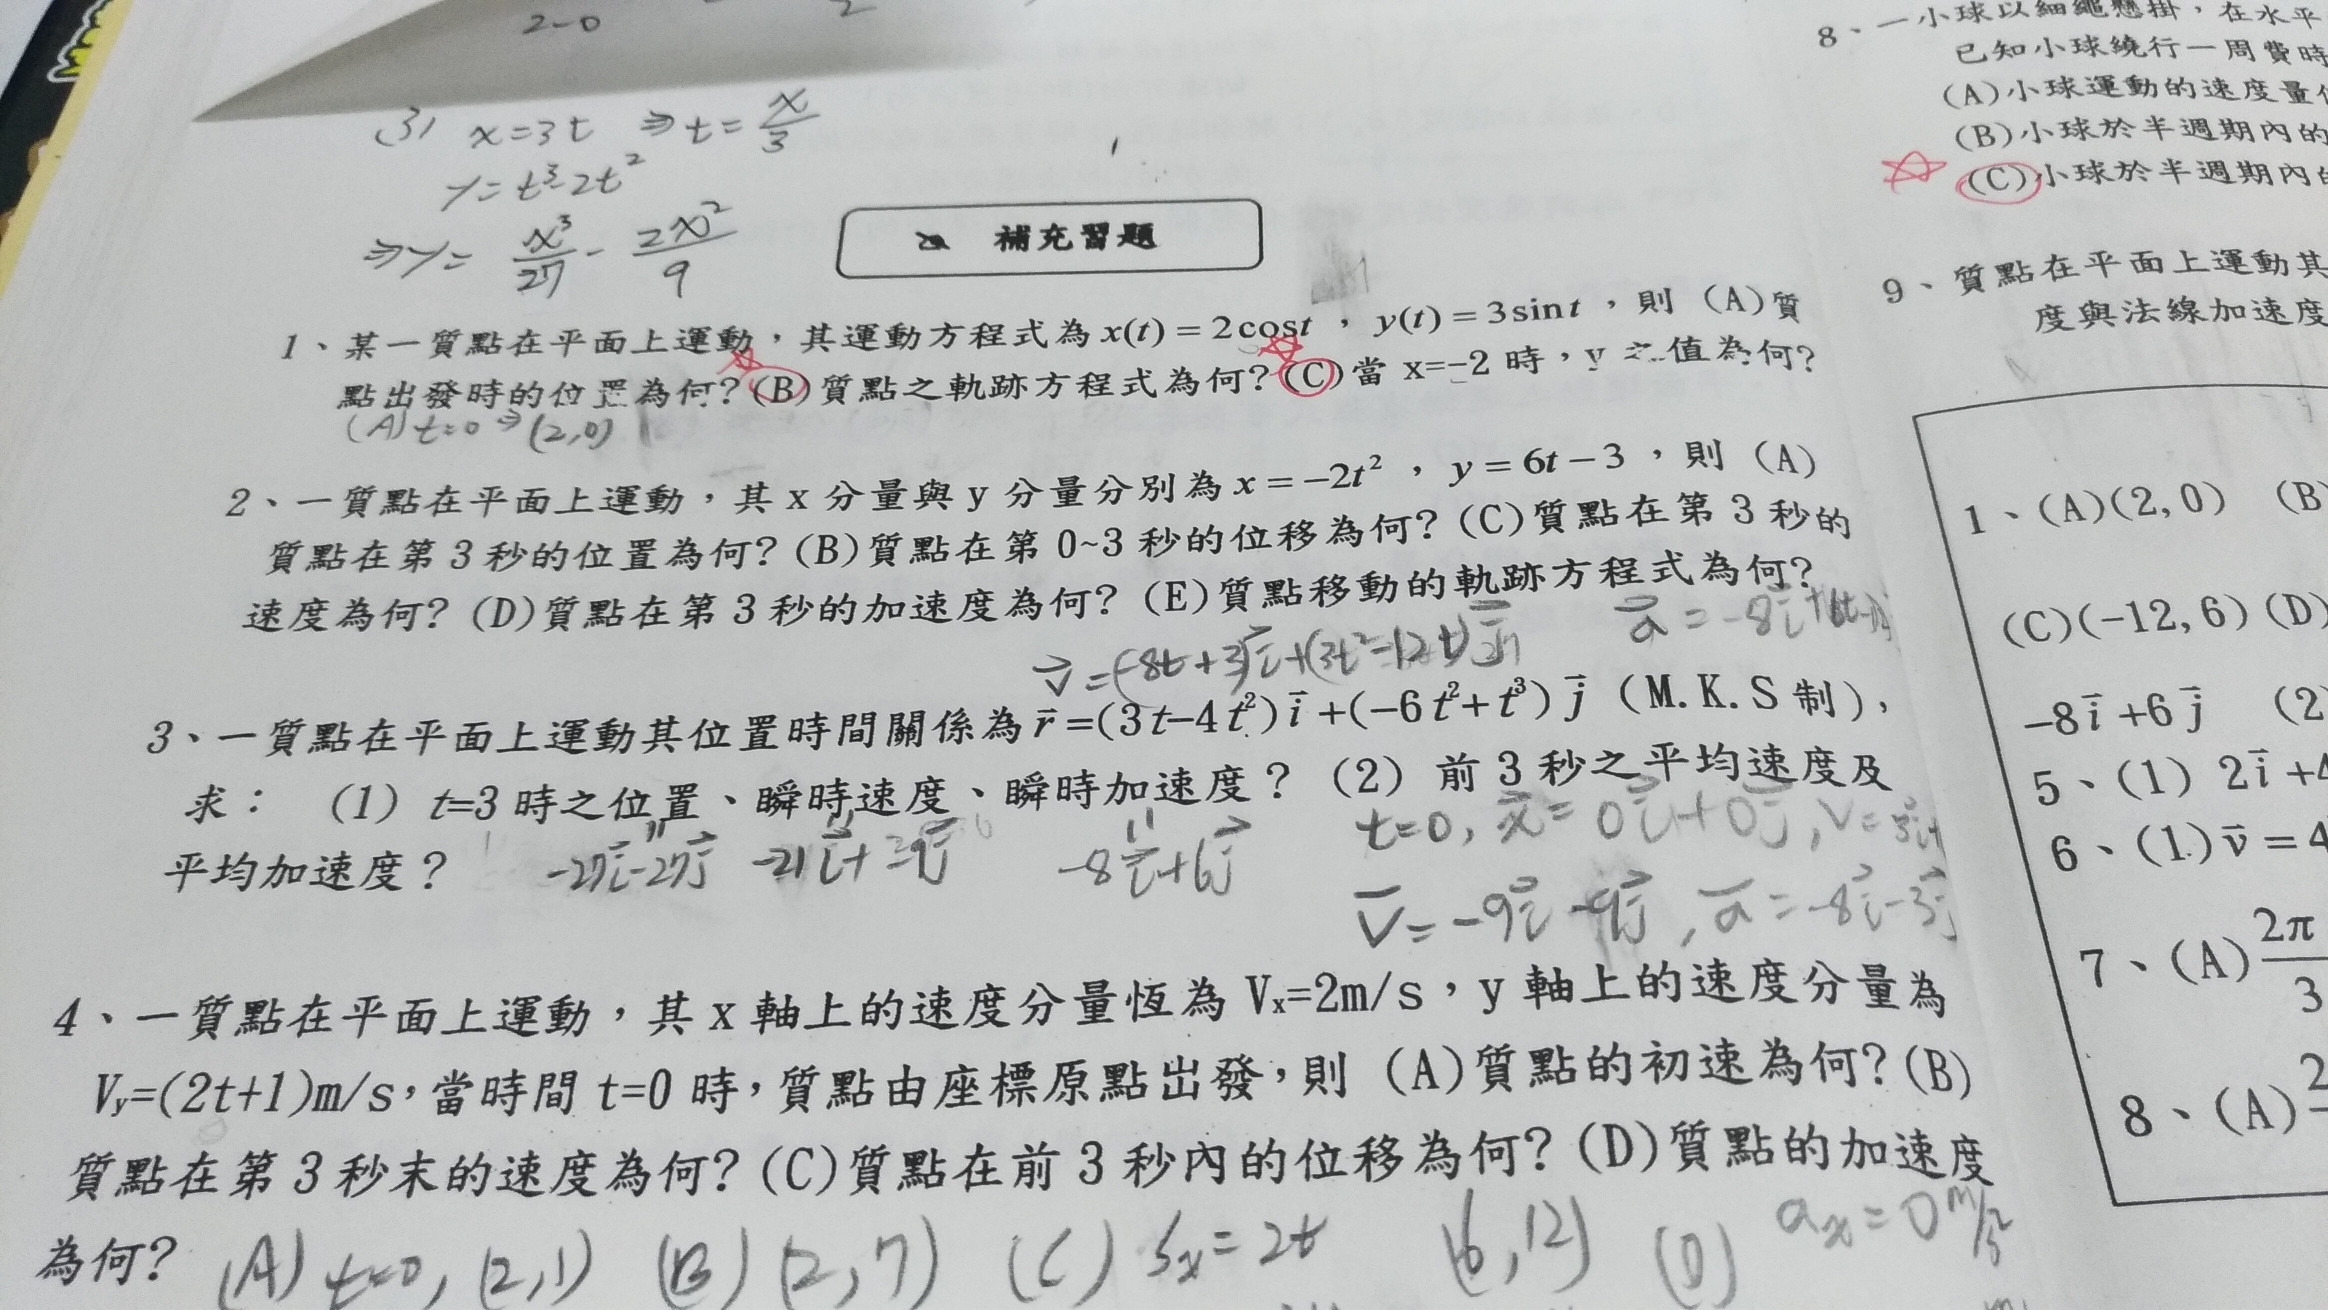 2-0
2
(3) x=3t ⇒ t= x/3
y=t³-2t²
⇒y= x³/27 - 2x²/9
補充習題
1、某一質點在平面上運動，其運動方程式為x(t)=2cost，y(t)=3sint，則 (A)質
點出發時的位置為何?(B)質點之軌跡方程式為何?(C)當 x=-2 時，y 之值為何?
(A) t=0 ⇒ (2,0)
2、一質點在平面上運動，其 x 分量與 y 分量分別為 x=-2t²，y=6t-3，則 (A)
質點在第 3 秒的位置為何? (B)質點在第 0~3 秒的位移為何? (C)質點在第 3 秒的
速度為何? (D)質點在第 3 秒的加速度為何? (E)質點移動的軌跡方程式為何?
a⃗ = -8i⃗ +(6t-12)j⃗
v⃗ =(-8t+3)i⃗+(3t²-12t)j⃗
3、一質點在平面上運動其位置時間關係為 r⃗=(3t-4t²)i⃗+(-6t²+t³)j⃗ (M.K.S 制)，
求： (1) t=3 時之位置、瞬時速度、瞬時加速度？ (2) 前 3 秒之平均速度及
平均加速度？
-27i⃗-27j⃗ -21i⃗+ -9j⃗ -8i⃗+6j⃗
t=0, x⃗= 0i⃗+0j⃗, V=3i⃗
V̄= -9i⃗ -9j⃗, ā= -8i⃗-3j⃗
4、一質點在平面上運動，其 x 軸上的速度分量恆為 Vx=2m/s，y 軸上的速度分量為
Vy=(2t+1)m/s，當時間 t=0 時，質點由座標原點出發，則 (A)質點的初速為何? (B)
質點在第 3 秒末的速度為何? (C)質點在前 3 秒內的位移為何? (D)質點的加速度
為何?
(A) t=0, (2,1) (B) (2,7) (C) Sx=2t (6,12) (D) ax=0 m/s²
8、一小球以細繩懸掛，在水平
已知小球繞行一周費時
(A)小球運動的速度量
(B)小球於半週期內的
(C)小球於半週期內
9、質點在平面上運動其
度與法線加速度
1、(A)(2,0) (B
(C)(-12,6) (D)
-8i⃗+6j⃗ (2
5、(1) 2i⃗+4
6、(1)v⃗=4
7、(A) 2π/3
8、(A) 2